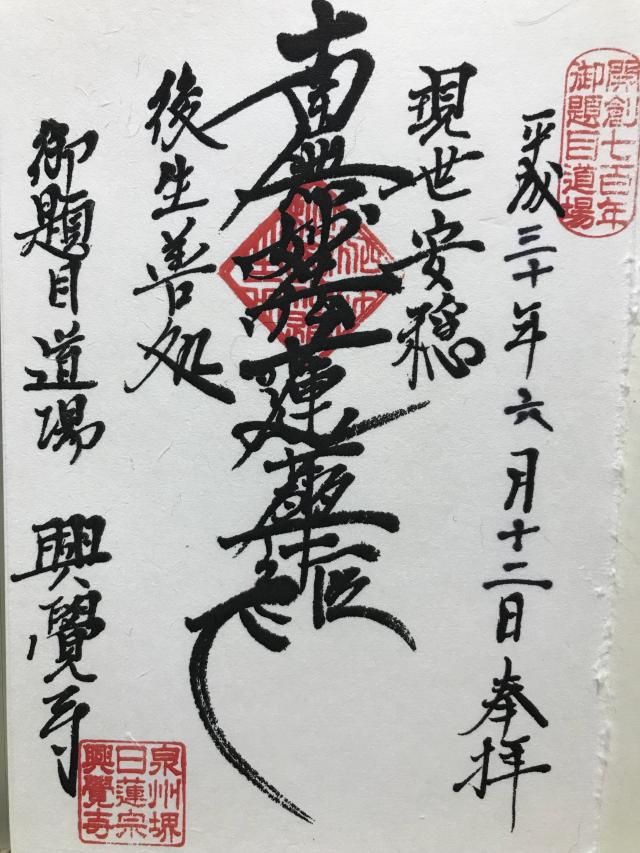 開創七百年
御題目道場
平成三十年六月十二日 奉拝
現世安穏
南無妙法蓮華経
後生善処
御題目道場 興覺寺
泉州堺
日蓮宗
興覺寺